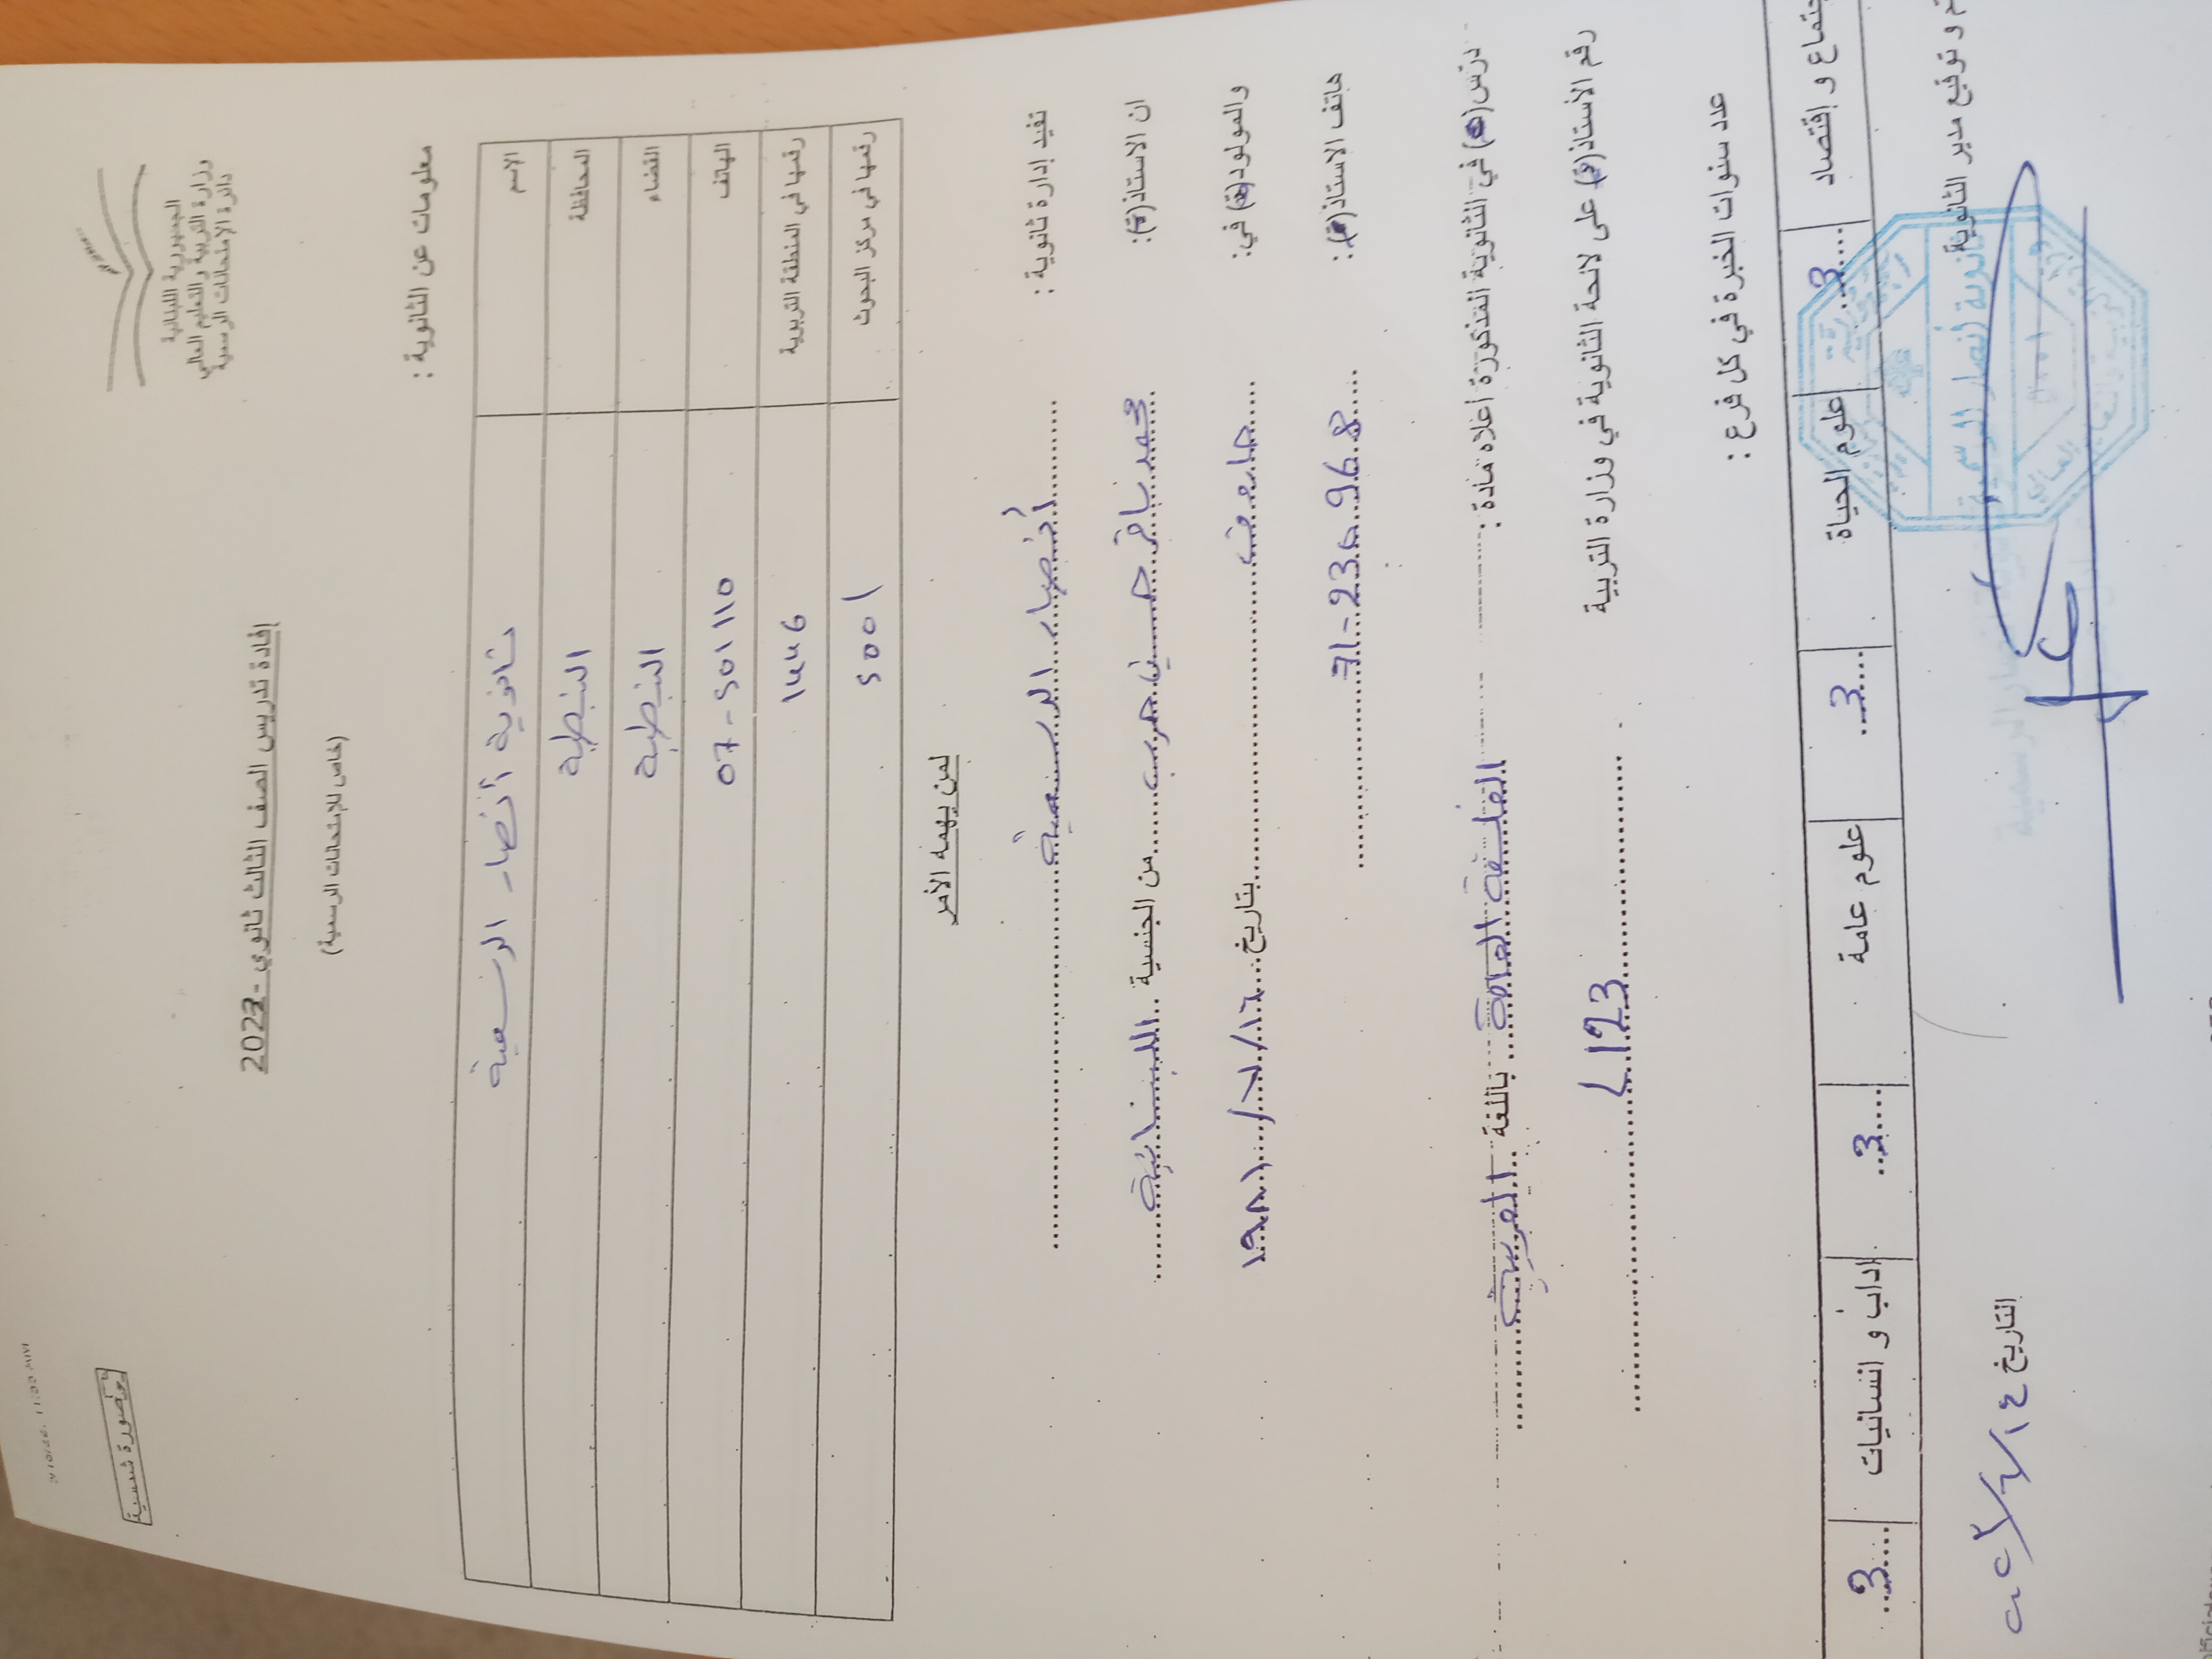 الجمهورية اللبنانية
وزارة التربية والتعليم العالي
دائرة الإمتحانات الرسمية
صورة شمسية
إفادة تدريس الصف الثالث ثانوي - 2023
(خاص للإمتحانات الرسمية)
معلومات عن الثانوية :
الإسم ثانوية أنصار الرسمية
المحافظة النبطية
القضاء النبطية
الهاتف 07-501110
رقمها في المنطقة التربوية ١٣٣٦
رقمها في مركز البحوث
لمن يهمه الأمر
تفيد إدارة ثانوية : أنصار الرسمية
ان الاستاذ(ة): محمد باقر حسين حرب من الجنسية اللبنانية
والمولود(ة) في: بتاريخ
هاتف الاستاذ(ة):
درّس(ت) في الثانوية المذكورة أعلاه مادة : الفلسفة العامة باللغة العربية
رقم الأستاذ(ة) على لائحة الثانوية في وزارة التربية
عدد سنوات الخبرة في كل فرع :
إقتصاد 3 علوم الحياة 3 علوم عامة 3 آداب و انسانيات 3
و توقيع مدير الثانوية
التاريخ
ثانوية أنصار الرسمية